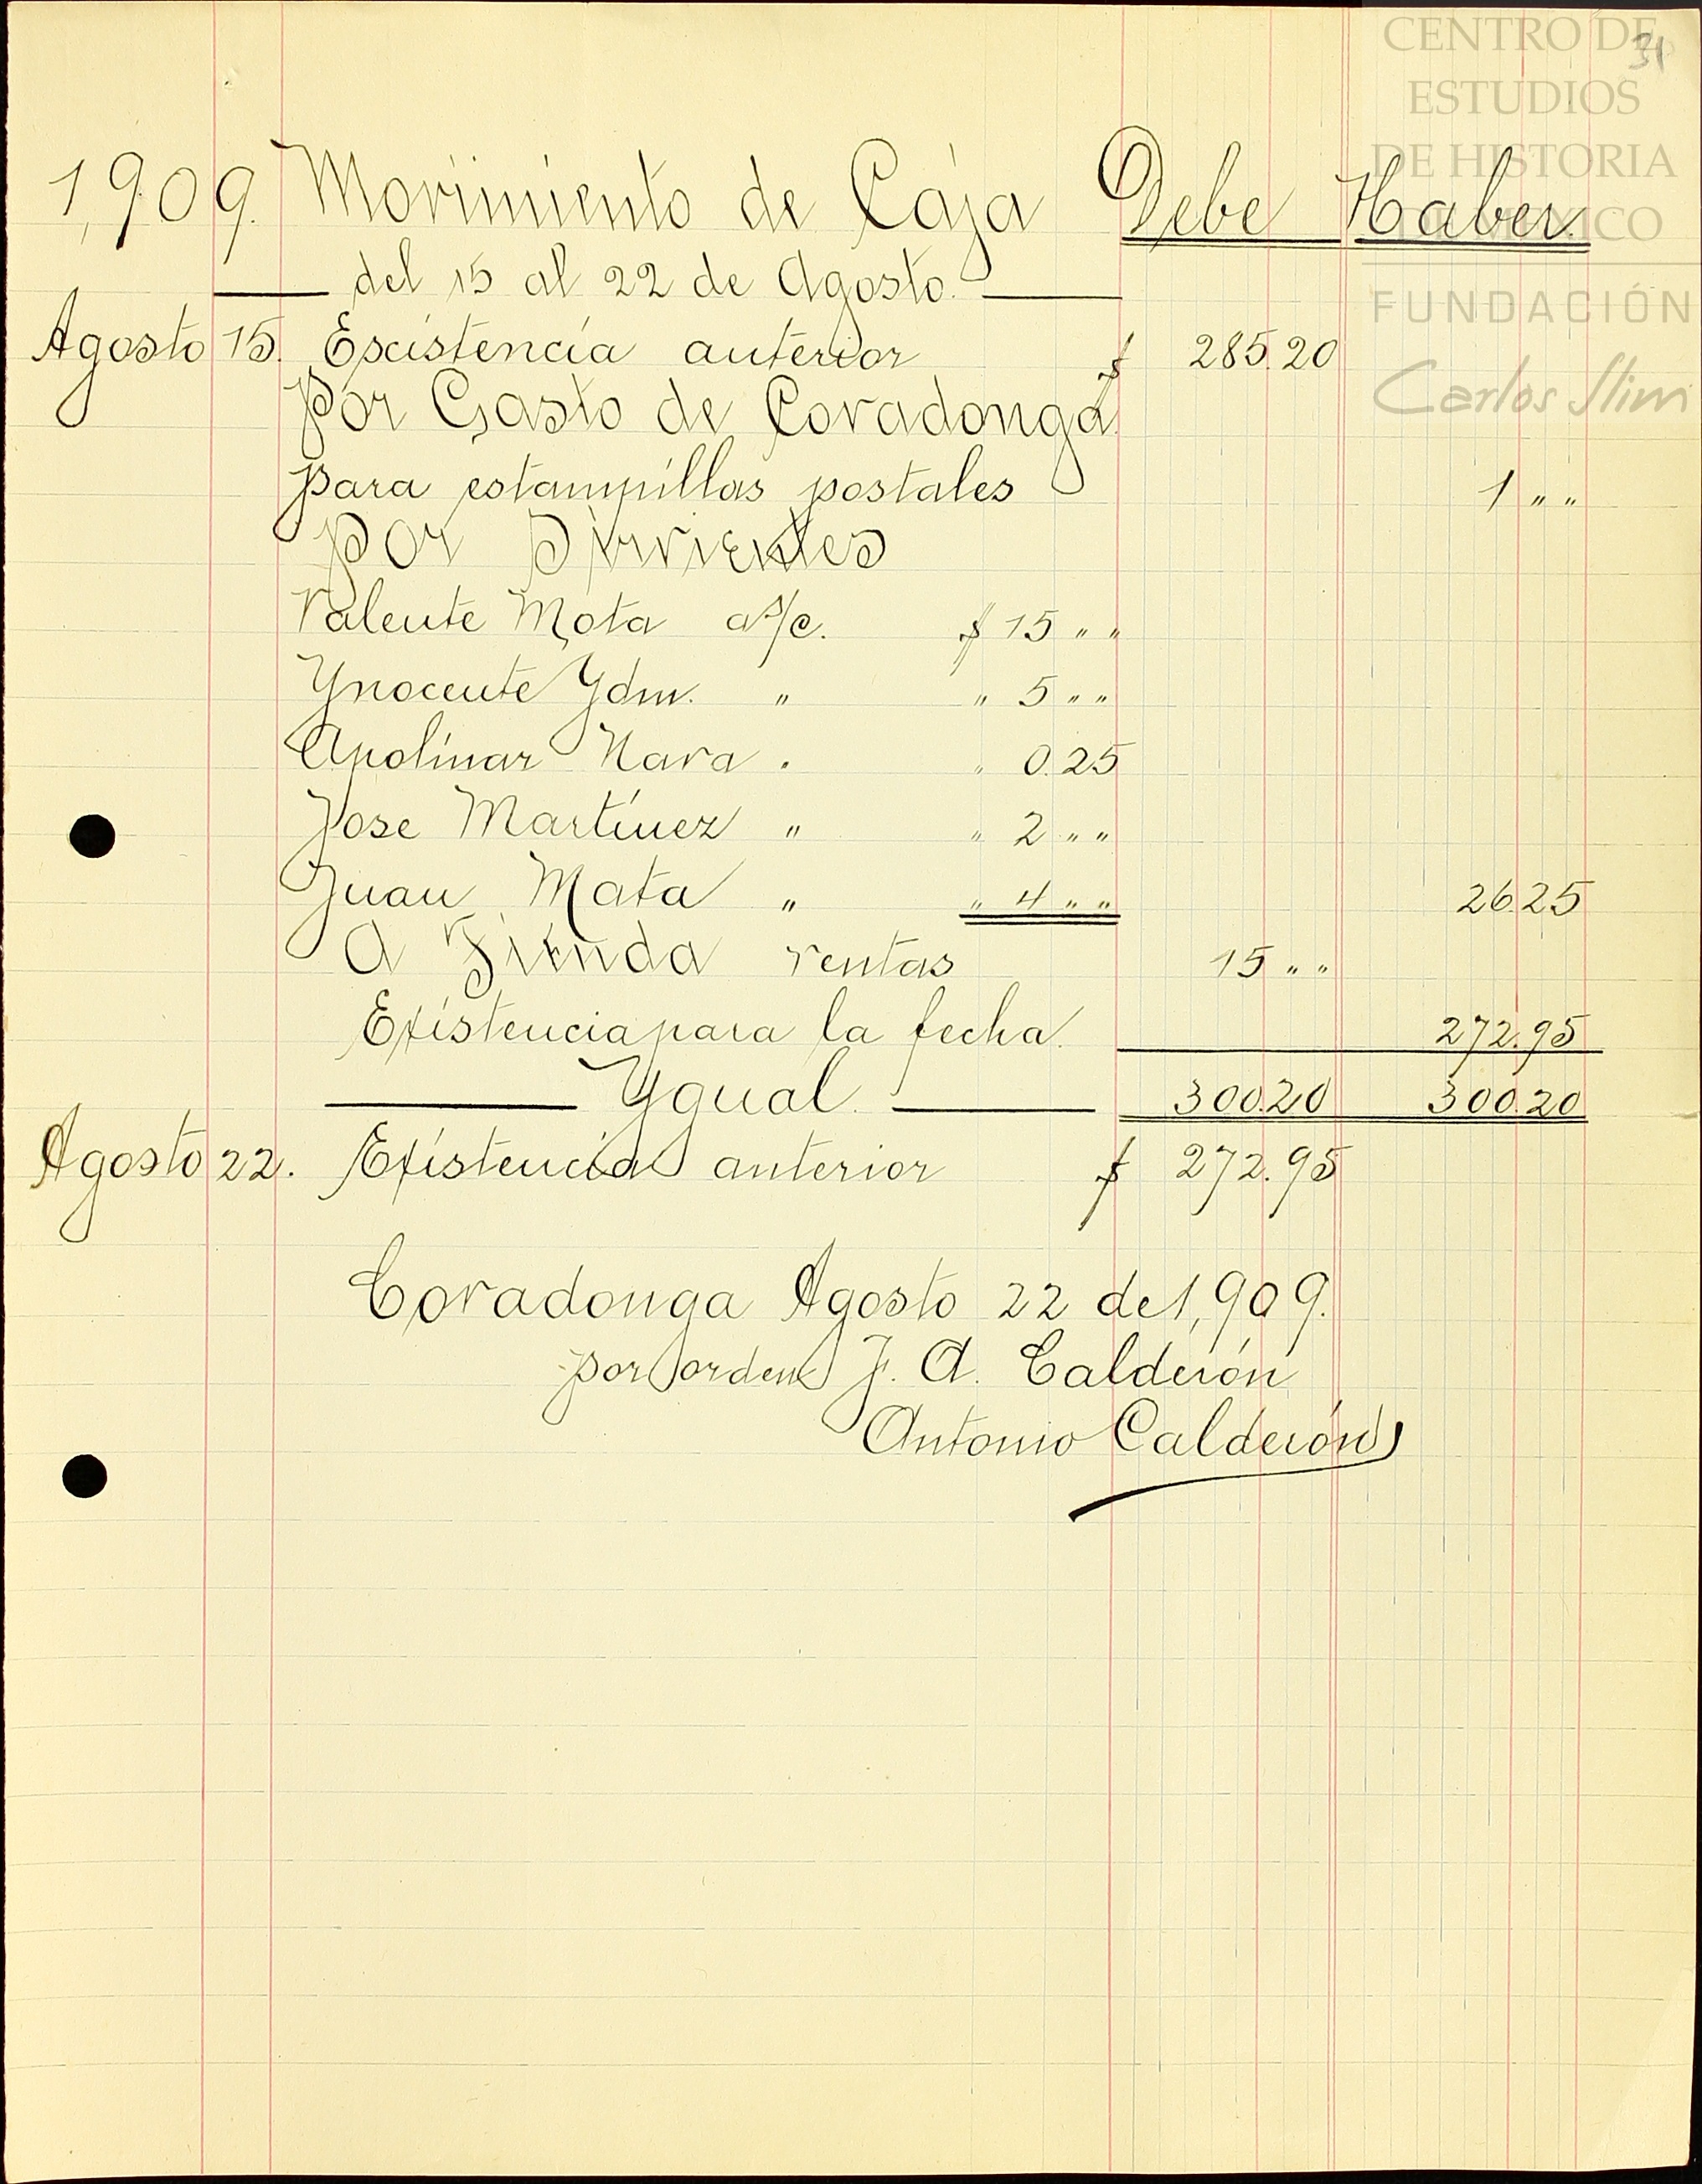 CENTRO DE
31
ESTUDIOS
DE HISTORIA
DE MÉXICO
FUNDACIÓN
Carlos Slim
1,909. Movimiento de Caja Debe Haber.
del 15 al 22 de Agosto.
Agosto 15. Escistencia anterior $ 285.20
Por Gasto de Covadonga
para estampillas postales 1 " "
Por Sirvientes
Valente Mota a/c. $ 15 " "
Ynocente Ydm. " " 5 " "
Apolinar Nava . " 0.25
Jose Martínez " " 2 " "
Juan Mata " " 4 " " 26.25
A Tienda ventas 15 " "
Existencia para la fecha. 272.95
Ygual. 300.20 300.20
Agosto 22. Existencia anterior $ 272.95
Covadonga Agosto 22 de 1,909.
por orden J. A. Calderón
Antonio Calderón